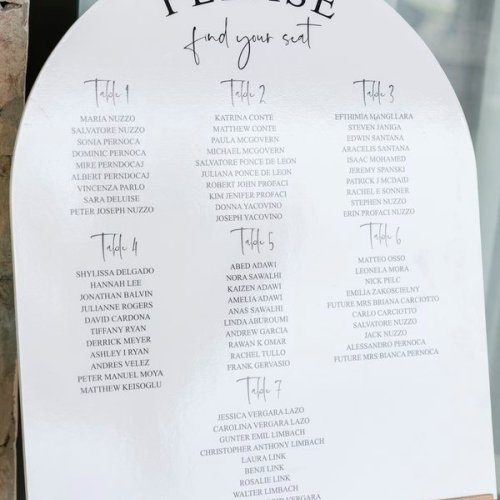 PLEASE
find your seat
Table 1
MARIA NUZZO
SALVATORE NUZZO
SONIA PERNOCA
DOMINIC PERNOCA
MIRE PERNDOCAJ
ALBERT PERNDOCAJ
VINCENZA PARLO
SARA DELUISE
PETER JOSEPH NUZZO
Table 2
KATRINA CONTE
MATTHEW CONTE
PAULA MCGOVERN
MICHAEL MCGOVERN
SALVATORE PONCE DE LEON
JULIANA PONCE DE LEON
ROBERT JOHN PROFACI
KIM JENIFER PROFACI
DONNA YACOVINO
JOSEPH YACOVINO
Table 3
EFTHIMIA MANGLLARA
STEVEN JANIGA
EDWIN SANTANA
ARACELIS SANTANA
ISAAC MOHAMED
JEREMY SPANSKI
PATRICK J MCDAID
RACHEL E SONNER
STEPHEN NUZZO
ERIN PROFACI NUZZO
Table 4
SHYLISSA DELGADO
HANNAH LEE
JONATHAN BALVIN
JULIANNE ROGERS
DAVID CARDONA
TIFFANY RYAN
DERRICK MEYER
ASHLEY I RYAN
ANDRES VELEZ
PETER MANUEL MOYA
MATTHEW KEISOGLU
Table 5
ABED ADAWI
NORA SAWALHI
KAIZEN ADAWI
AMELIA ADAWI
ANAS SAWALHI
LINDA ABUROUMI
ANDREW GARCIA
RAWAN K OMAR
RACHEL TULLO
FRANK GERVASIO
Table 6
MATTEO OSSO
LEONELA MORA
NICK PELC
EMILIA ZAKOSCIELNY
FUTURE MRS BRIANA CARCIOTTO
CARLO CARCIOTTO
SALVATORE NUZZO
JACK NUZZO
ALESSANDRO PERNOCA
FUTURE MRS BIANCA PERNOCA
Table 7
JESSICA VERGARA LAZO
CAROLINA VERGARA LAZO
GUNTER EMIL LIMBACH
CHRISTOPHER ANTHONY LIMBACH
LAURA LINK
BENJI LINK
ROSALIE LINK
WALTER VERGARA